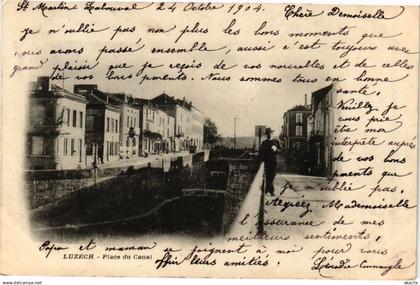 St Martin Labouval 24 Octobre 1904. Chère Demoiselle
je n'oublie pas non plus les bons moments que
nous avons passé ensemble, aussi c'est toujours avec
grand plaisir que je reçois de vos nouvelles et de celles
de vos bons parents. Nous sommes tous en bonne
santé,
Veuillez je
vous prie
être mon
interprète auprès
de vos bons
parents que je
n'oublie pas.
Agréez Mademoiselle
l'assurance de mes
meilleurs sentiments,
papa et maman se joignent à moi pour vous
offrir leurs amitiés.
LUZECH - Place du Canal